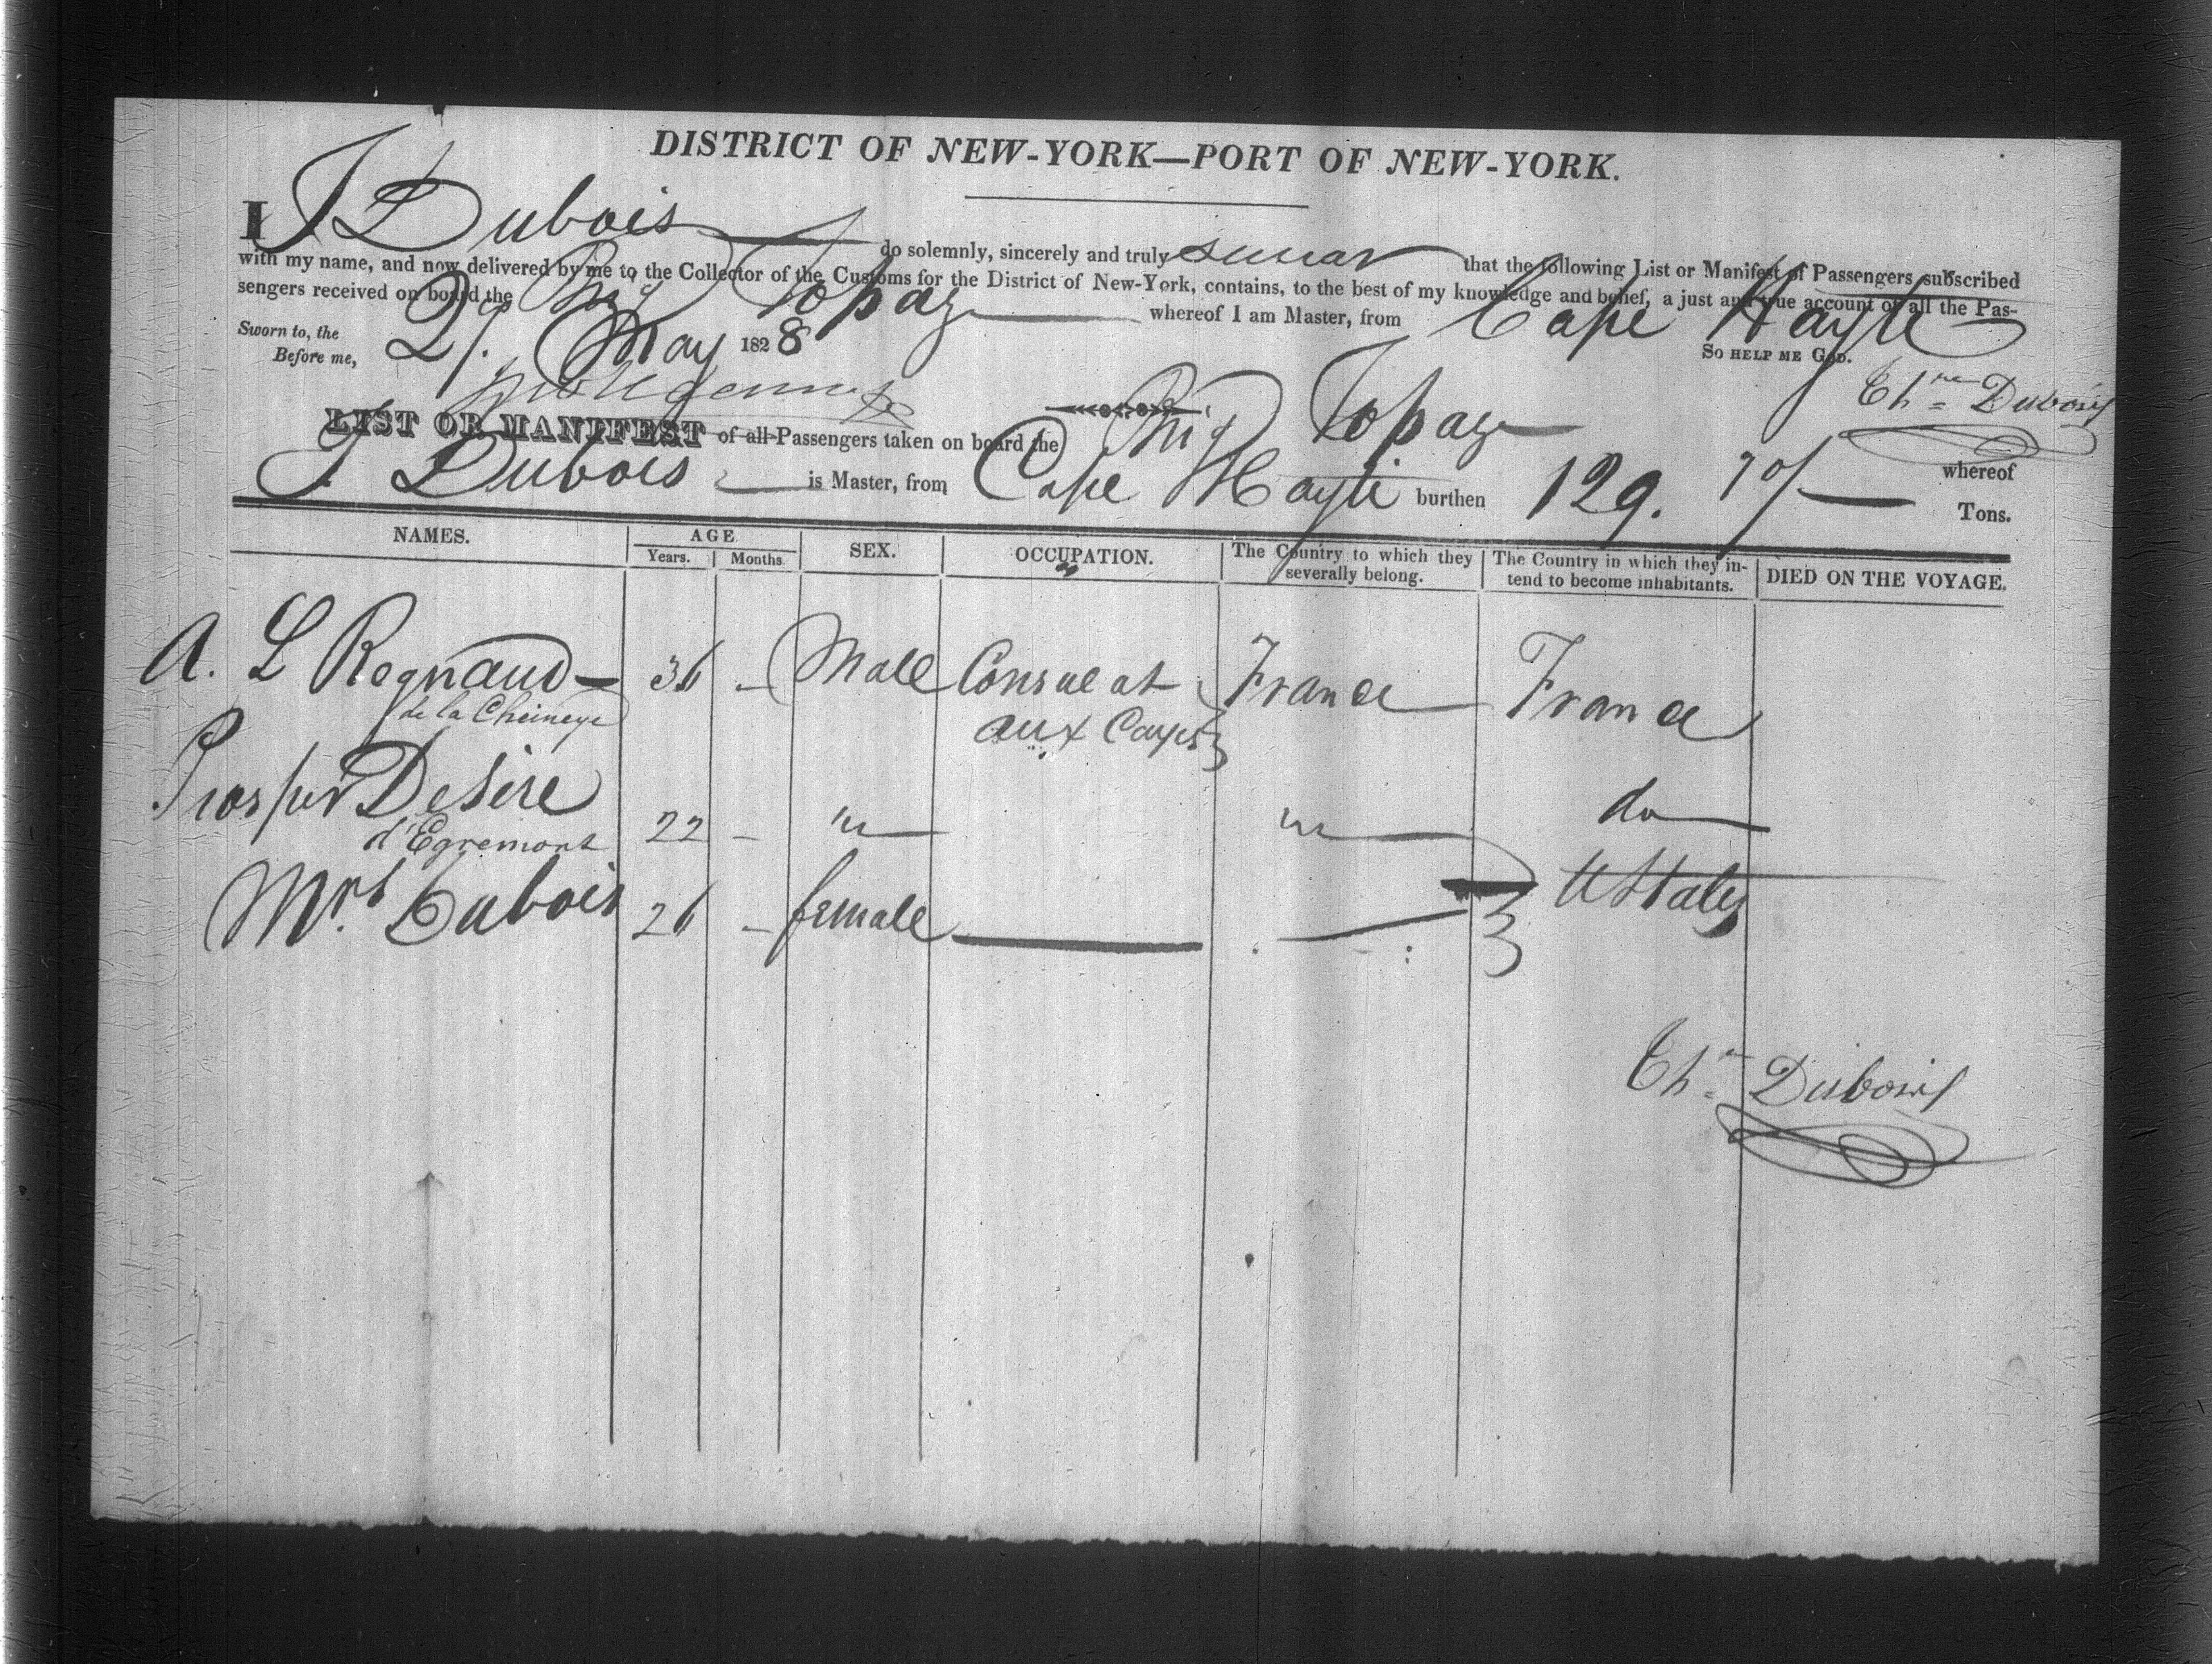 DISTRICT OF NEW-YORK—PORT OF NEW-YORK.
I J Dubois do solemnly, sincerely and truly swear that the following List or Manifest of Passengers subscribed
with my name, and now delivered by me to the Collector of the Customs for the District of New-York, contains, to the best of my knowledge and belief, a just and true account of all the Pas-
sengers received on board the Brig Topaz whereof I am Master, from Cape Hayti
Sworn to, the 21. May 1828 So help me God.
Before me,
Chne Dubois
LIST OR MANIFEST of all Passengers taken on board the Brig Topaz whereof
J Dubois is Master, from Cape Hayti burthen 129. 70/ Tons.
NAMES. AGE SEX. OCCUPATION. The Country to which they severally belong. The Country in which they in-tend to become inhabitants. DIED ON THE VOYAGE.
Years. Months.
A. L Regnaud 36 - Male Consul at France France
de la Cheineye aux Cayes
Prosper Desire
d'Egremont 22 - " " do
Mrs Dubois 26 - female UStates
Chne Dubois